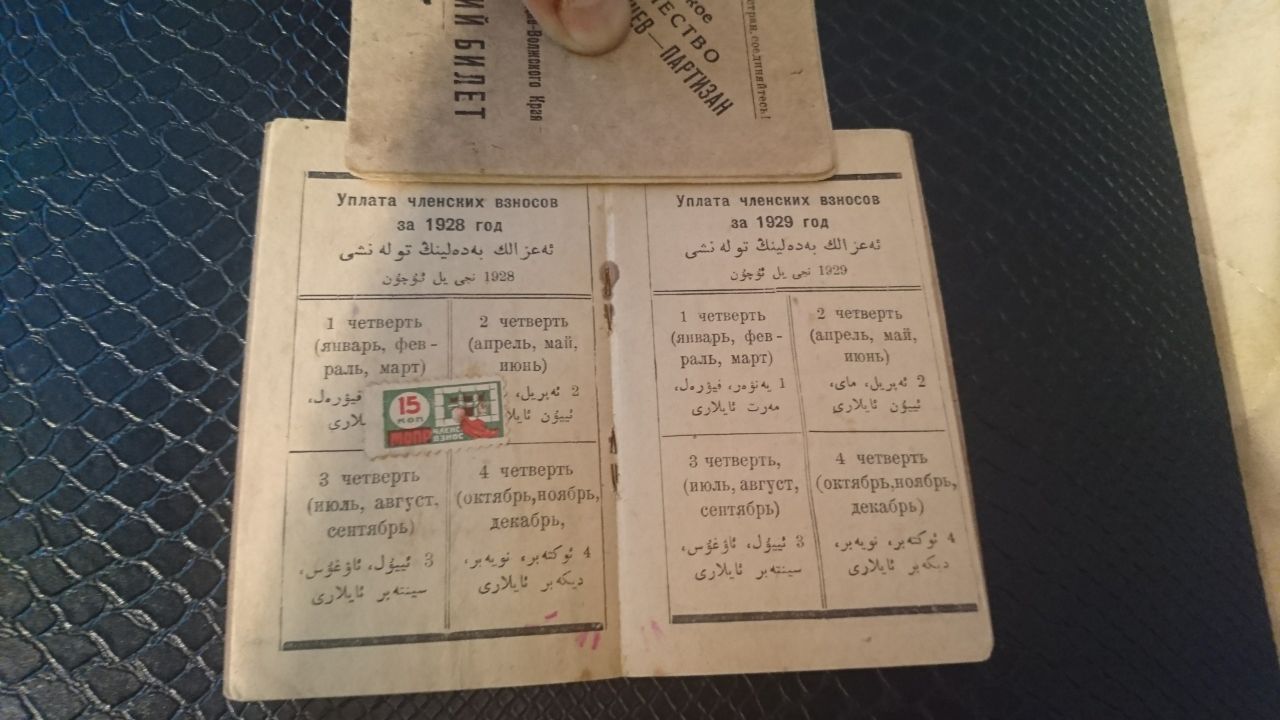 ИЙ БИЛЕТ
-Волжского Края
ЕСТВО
ПАРТИЗАН
соединяйтесь!
Уплата членских взносов
за 1928 год
ئەعزالك بەدەلینڭ تولەنشی
1928 نجی یل ئۇچۇن
1 четверть
(январь, фев-
раль, март)
فیۋرەل،
2 четверть
(апрель, май,
июнь)
2 ئەبریل،
ئییۇن
15
коп
МОПР
ЧЛЕНС
ВЗНОС
3 четверть
(июль, август,
сентябрь)
3 ئییۇل، ئاۋغۇس،
سینتەبر ئایلاری
4 четверть
(октябрь,ноябрь,
декабрь,
4 ئوكتەبر، نویەبر،
دیكەبر ئایلاری
Уплата членских взносов
за 1929 год
ئەعزالك بەدەلینڭ تولەنشی
1929 نجی یل ئۇچۇن
1 четверть
(январь, фев-
раль, март)
1 یەنۋەر، فیۋرەل،
مەرت ئایلاری
2 четверть
(апрель, май,
июнь)
2 ئەبریل، مای،
ئییۇن ئایلاری
3 четверть,
(июль, август,
сентябрь)
3 ئییۇل، ئاۋغۇس،
سینتەبر ئایلاری
4 четверть
(октябрь,ноябрь,
декабрь)
4 ئوكتەبر، نویەبر،
دیكەبر ئایلاری